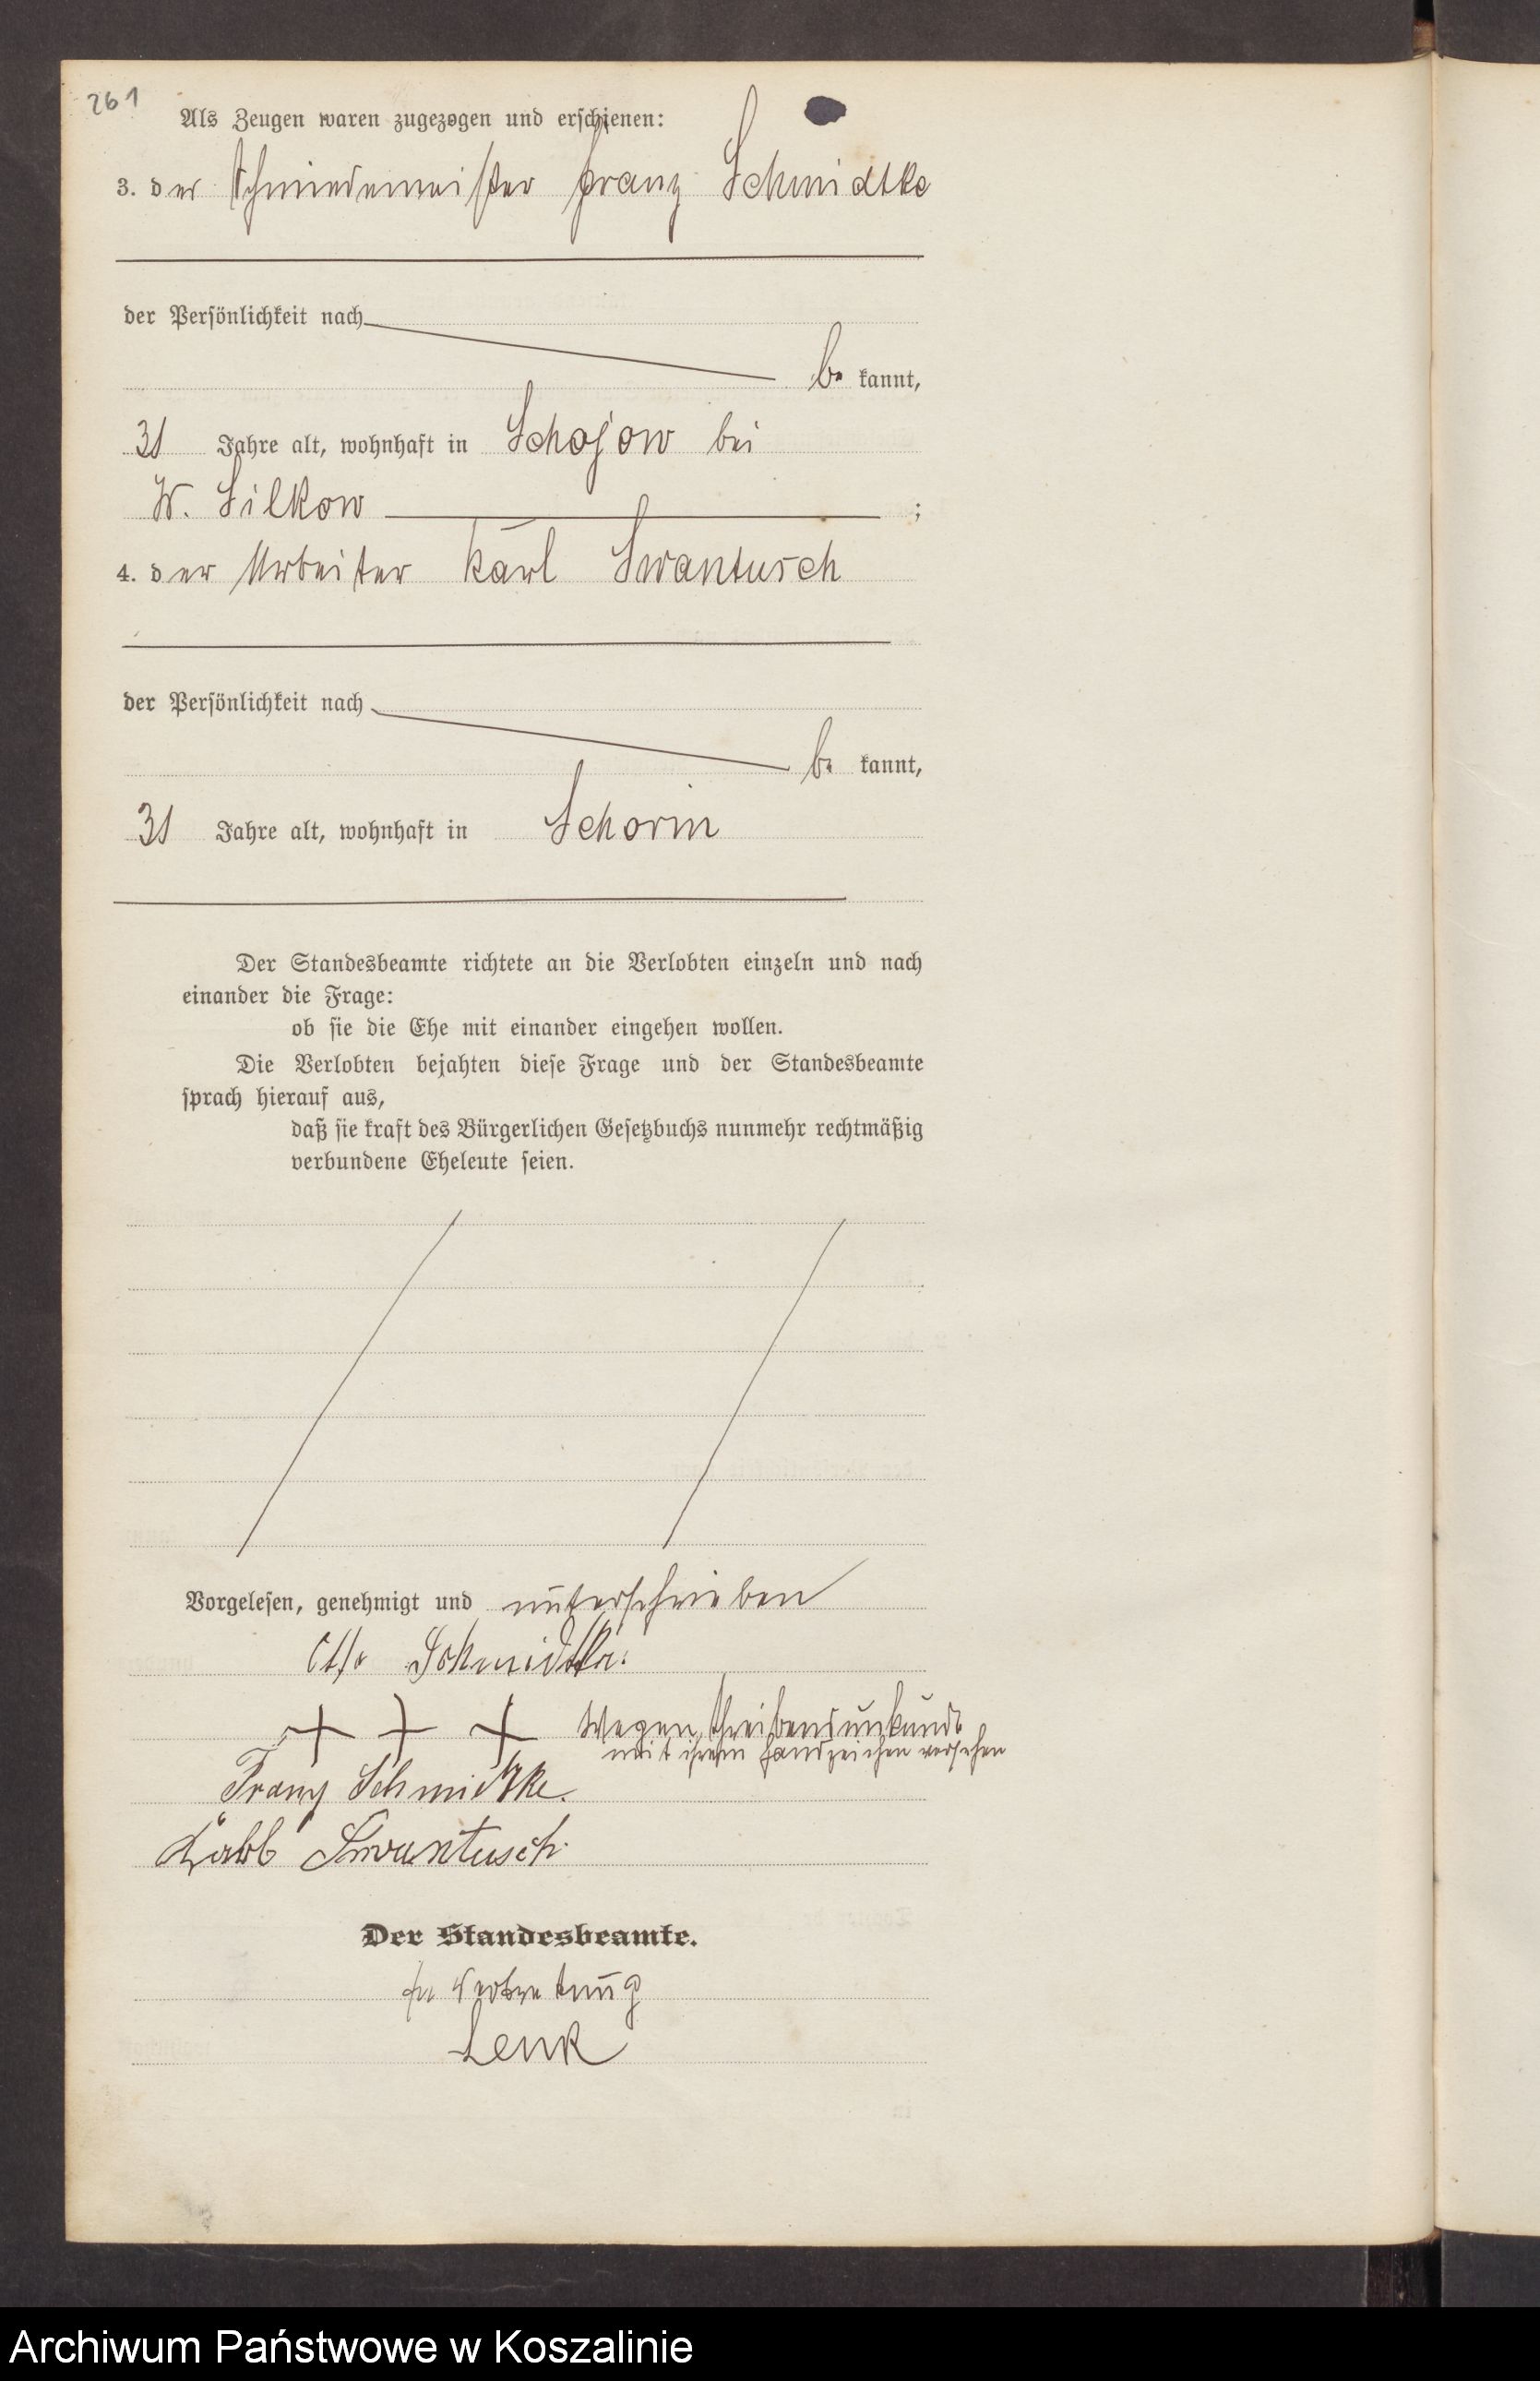 261
Als Zeugen waren zugezogen und erschienen:
3. der Schmiedemeister Franz Schmidtke
der Persönlichkeit nach
be kannt,
31 Jahre alt, wohnhaft in Schojow bei
W. Silkow ;
4. der Arbeiter Karl Swantusch
der Persönlichkeit nach
be kannt,
31 Jahre alt, wohnhaft in Schorin
Der Standesbeamte richtete an die Verlobten einzeln und nach
einander die Frage:
ob sie die Ehe mit einander eingehen wollen.
Die Verlobten bejahten diese Frage und der Standesbeamte
sprach hierauf aus,
daß sie kraft des Bürgerlichen Gesetzbuchs nunmehr rechtmäßig
verbundene Eheleute seien.
Vorgelesen, genehmigt und unterschrieben
Otto Schmidtke.
+ + + Wegen Schreibensunkunde
mit ihrem Handzeichen versehen
Franz Schmidtke.
Swantusch
Der Standesbeamte.
In Vertretung
Lenk
Archiwum Państwowe w Koszalinie